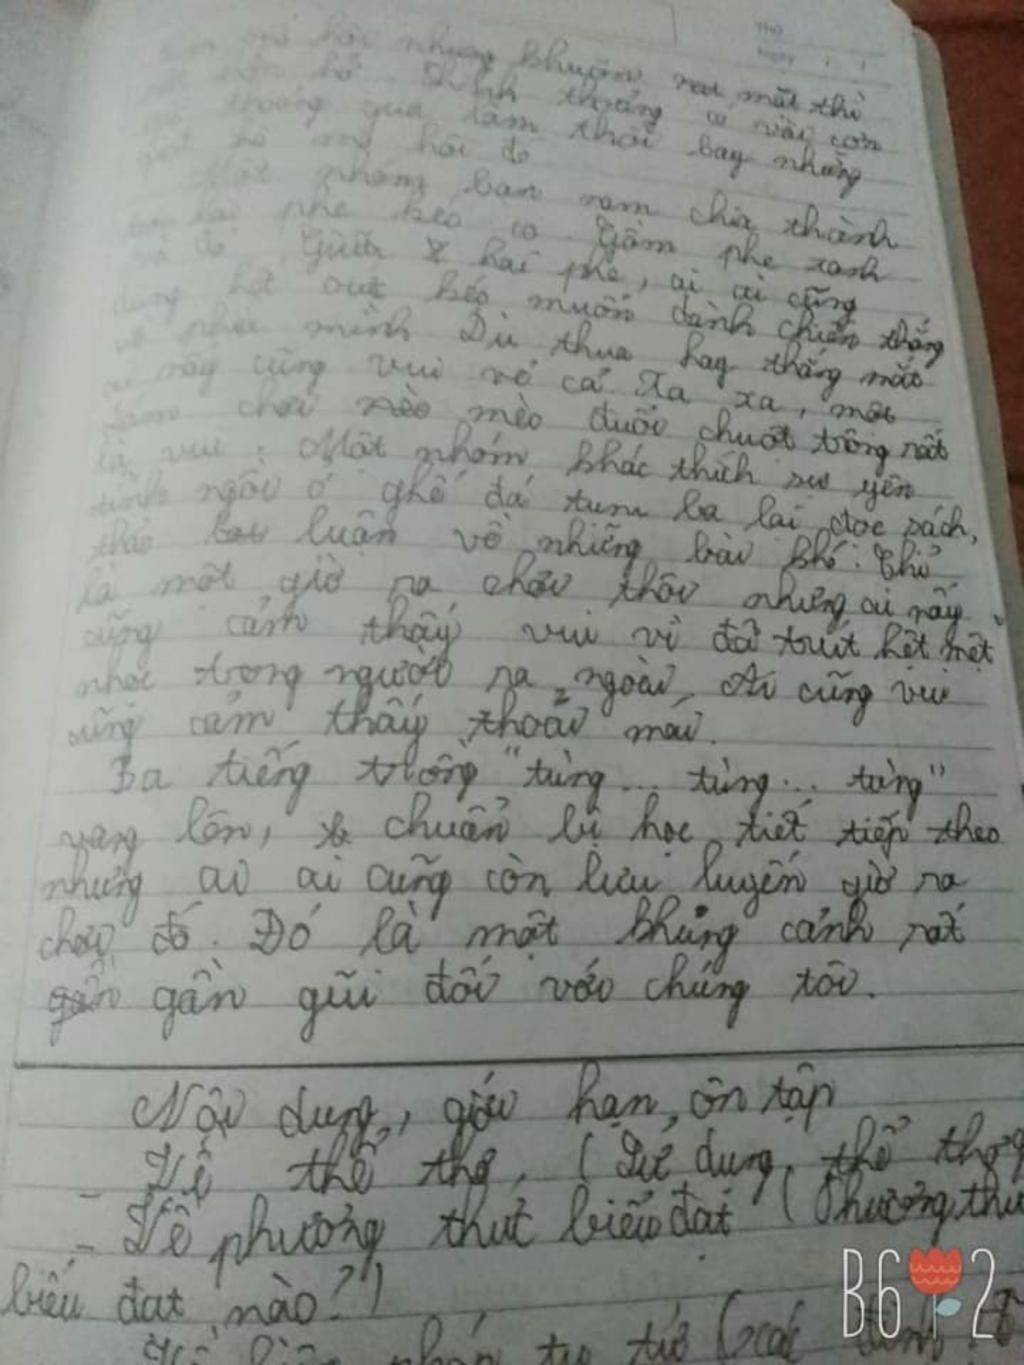 Thứ
Ngày / /
mồ hôi nhưng khuôn mặt thì
hở. Thỉnh thoảng có vài cơn
gió thoảng qua làm thổi bay những
giọt mồ hôi đó
Một nhóm bạn nam chia thành
hai phe kéo co. Gồm phe xanh
và đỏ. Giữa hai phe, ai ai cũng
dùng hết sức kéo muốn dành chiến thắng
về phía mình. Dù thua hay thắng
ai nấy cũng vui vẻ cả. Xa xa, một
nhóm chơi mèo đuổi chuột trông rất
là vui. Một nhóm khác thích sự yên
tĩnh ngồi ở ghế đá tụm ba lại đọc sách,
thảo luận về những bài khó. Chỉ
là một giờ ra chơi thôi nhưng ai nấy
cũng cảm thấy vui vì đã trút hết mệt
nhọc trong người ra ngoài. Ai cũng vui
cũng cảm thấy thoải mái.
Ba tiếng trống "tùng... tùng... tùng"
vang lên, chuẩn bị học tiết tiếp theo
nhưng ai ai cũng còn lưu luyến giờ ra
chơi đó. Đó là một khung cảnh rất
gần gũi đối với chúng tôi.
Nội dung, giới hạn, ôn tập
- Về thể thơ, (Sử dụng, thể thơ
- Về phương thức biểu đạt (Phương thứ
biểu đạt nào?)
từ (các
B6 2